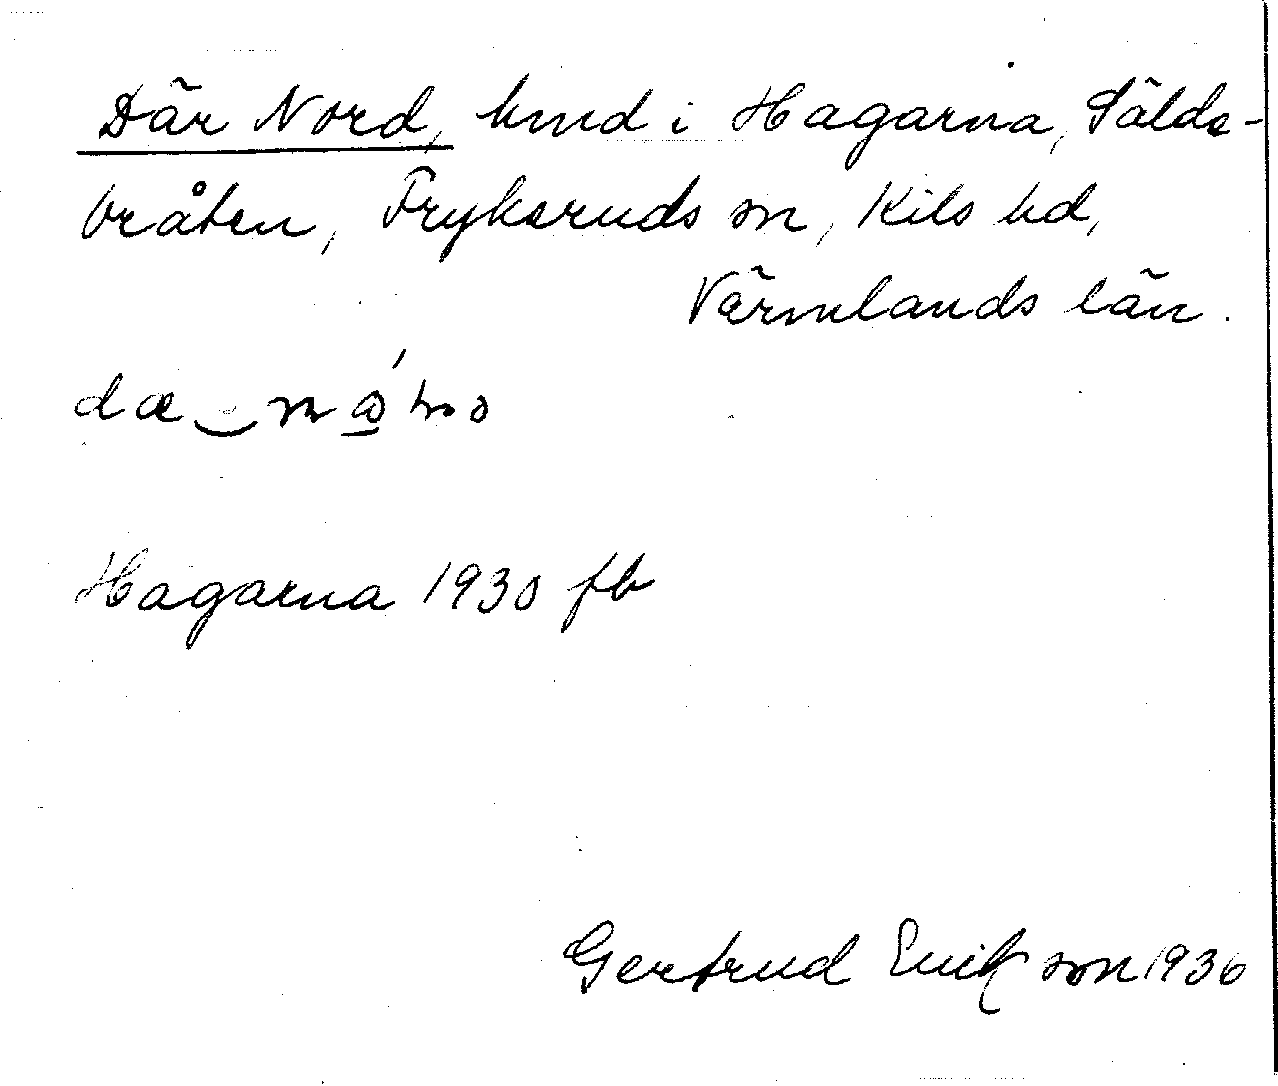 Där Nord, hmd i Hagarna, Sälde-
bråten, Fryksruds sn, Kils hd,
Värmlands län.
Hagarna 1930 fb
Gertrud Erikson 1936